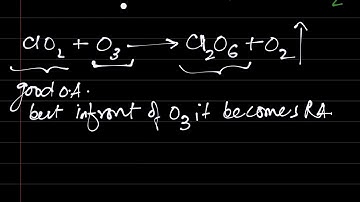 ClO₂ + O₃ → Cl₂O₆ + O₂ ↑
good O.A.
but infront of O₃ it becomes RA